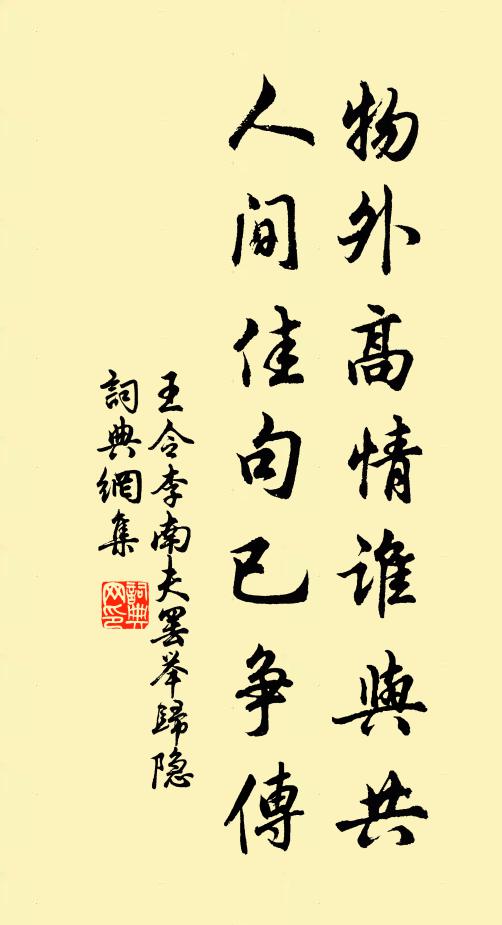 物外高情谁與共
人间佳句已争傳
王令李南夫罢举歸隐
詞典網集
詞典网印